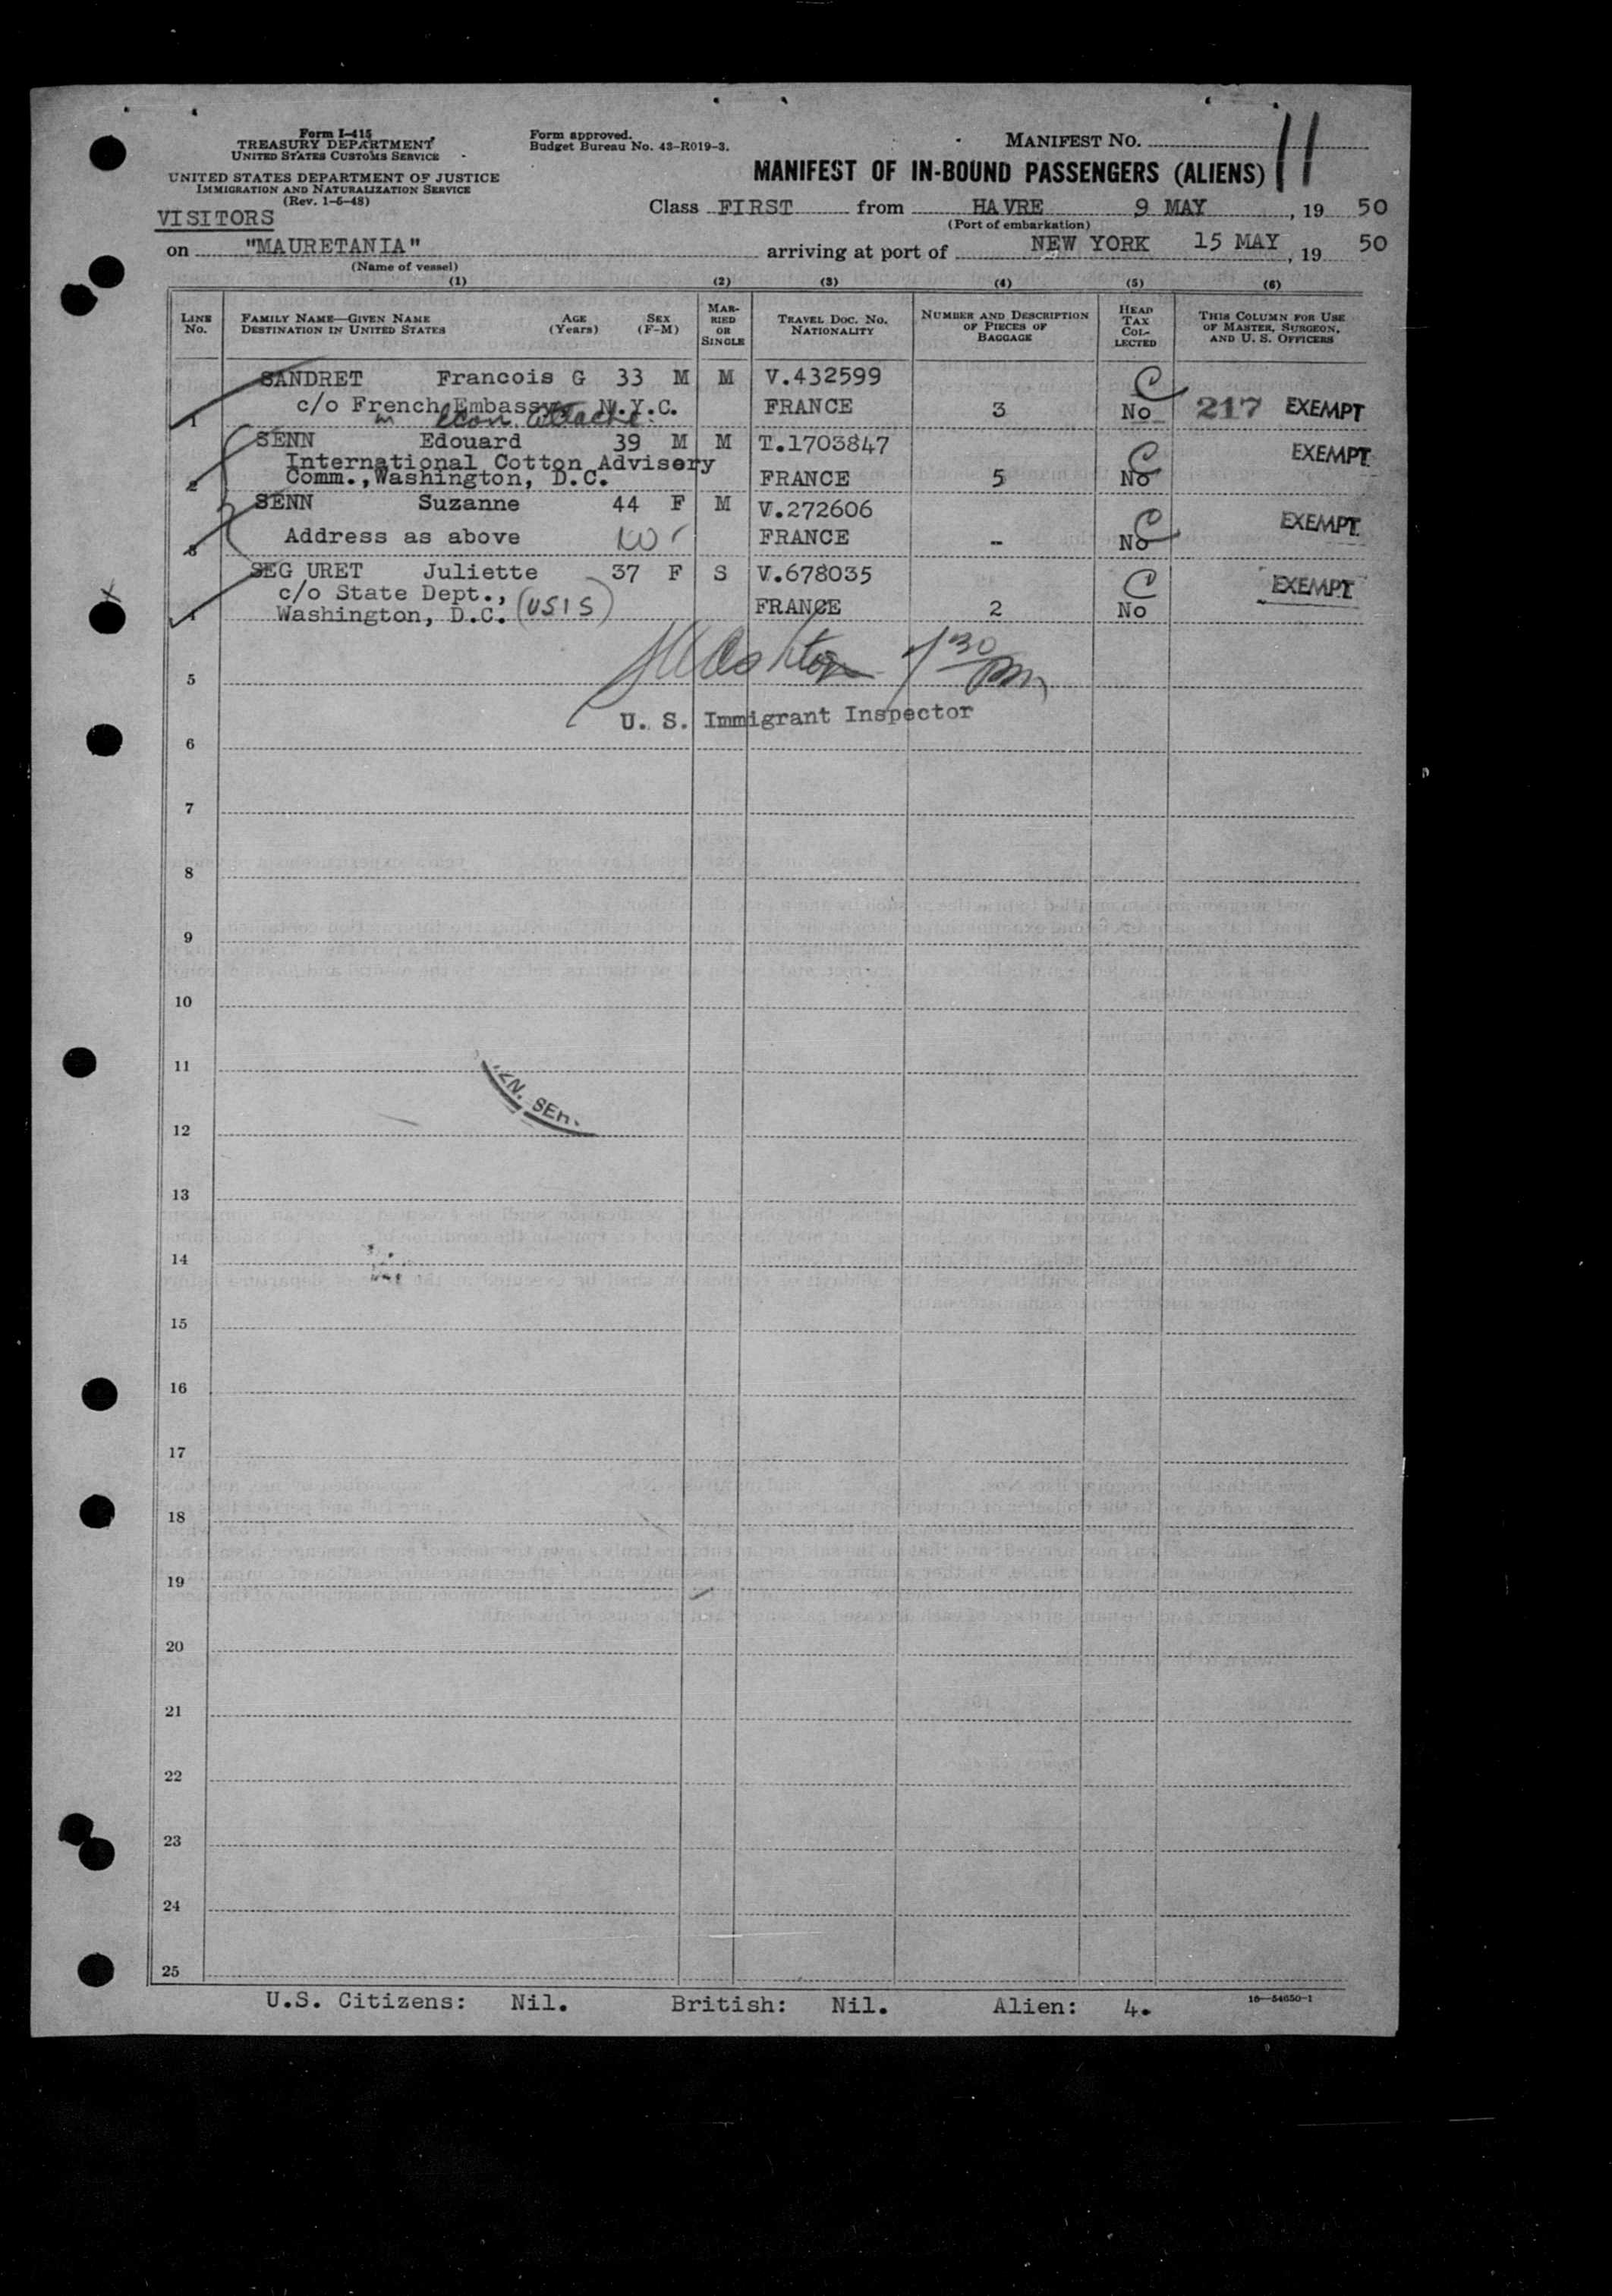 Form I-415
TREASURY DEPARTMENT
UNITED STATES CUSTOMS SERVICE
UNITED STATES DEPARTMENT OF JUSTICE
IMMIGRATION AND NATURALIZATION SERVICE
(Rev. 1-5-48)
Form approved.
Budget Bureau No. 43-R019-3.
MANIFEST NO. 11
MANIFEST OF IN-BOUND PASSENGERS (ALIENS)
VISITORS
Class FIRST from HAVRE 9 MAY, 19 50
(Port of embarkation)
on "MAURETANIA" arriving at port of NEW YORK 15 MAY, 19 50
(Name of vessel)
(1) (2) (3) (4) (5) (6)
LINE No. FAMILY NAME—GIVEN NAME DESTINATION IN UNITED STATES AGE (Years) SEX (F-M) MARRIED OR SINGLE TRAVEL DOC. NO. NATIONALITY NUMBER AND DESCRIPTION OF PIECES OF BAGGAGE HEAD TAX COLLECTED THIS COLUMN FOR USE OF MASTER, SURGEON, AND U. S. OFFICERS
SANDRET Francois G 33 M M V.432599 C
1 c/o French Embassy, N.Y.C. FRANCE 3 No 217 EXEMPT
Econ. Attache
SENN Edouard 39 M M T.1703847 C EXEMPT
International Cotton Advisory
2 Comm.,Washington, D.C. FRANCE 5 No
SENN Suzanne 44 F M V.272606 C EXEMPT
3 Address as above FRANCE - No
SEG URET Juliette 37 F S V.678035 C EXEMPT
c/o State Dept.,
4 Washington, D.C. (USIS) FRANCE 2 No
7 30 pm
5
U. S. Immigrant Inspector
6
7
8
9
10
11
12
13
14
15
16
17
18
19
20
21
22
23
24
25
U.S. Citizens: Nil. British: Nil. Alien: 4.
16—54650-1